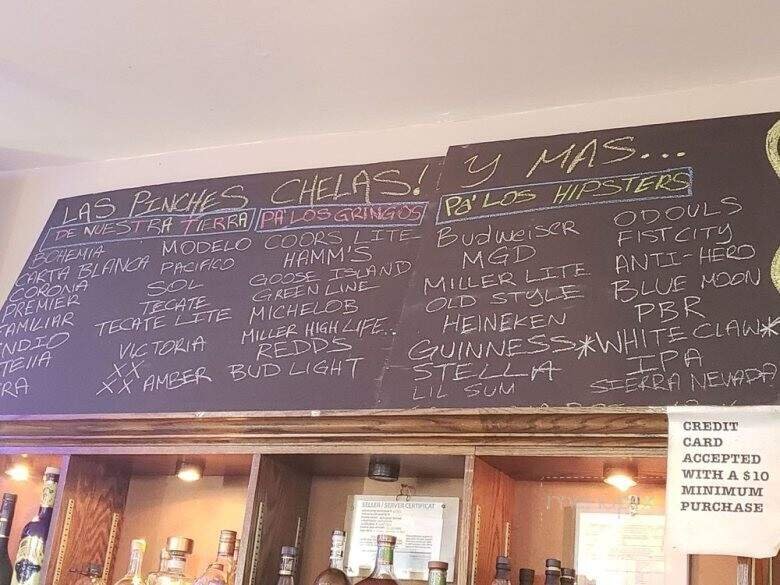 LAS PINCHES CHELAS!
DE NUESTRA TIERRA
BOHEMIA
CARTA BLANCA
CORONA
PREMIER
FAMILIAR
INDIO
MODELO
PACIFICO
SOL
TECATE
TECATE LITE
VICTORIA
XX
XX AMBER
PA' LOS GRINGOS
COORS LITE
HAMM'S
GOOSE ISLAND
GREEN LINE
MICHELOB
MILLER HIGH LIFE..
REDDS
BUD LIGHT
Y MAS...
Pa' LOS HIPSTERS
Budweiser
MGD
MILLER LITE
OLD STYLE
HEINEKEN
GUINNESS
STELLA
LIL SUM
ODOULS
FIST CITY
ANTI-HERO
BLUE MOON
PBR
*WHITE CLAW*
IPA
SIERRA NEVADA
CREDIT
CARD
ACCEPTED
WITH A $10
MINIMUM
PURCHASE
SELLER/SERVER CERTIFICAT